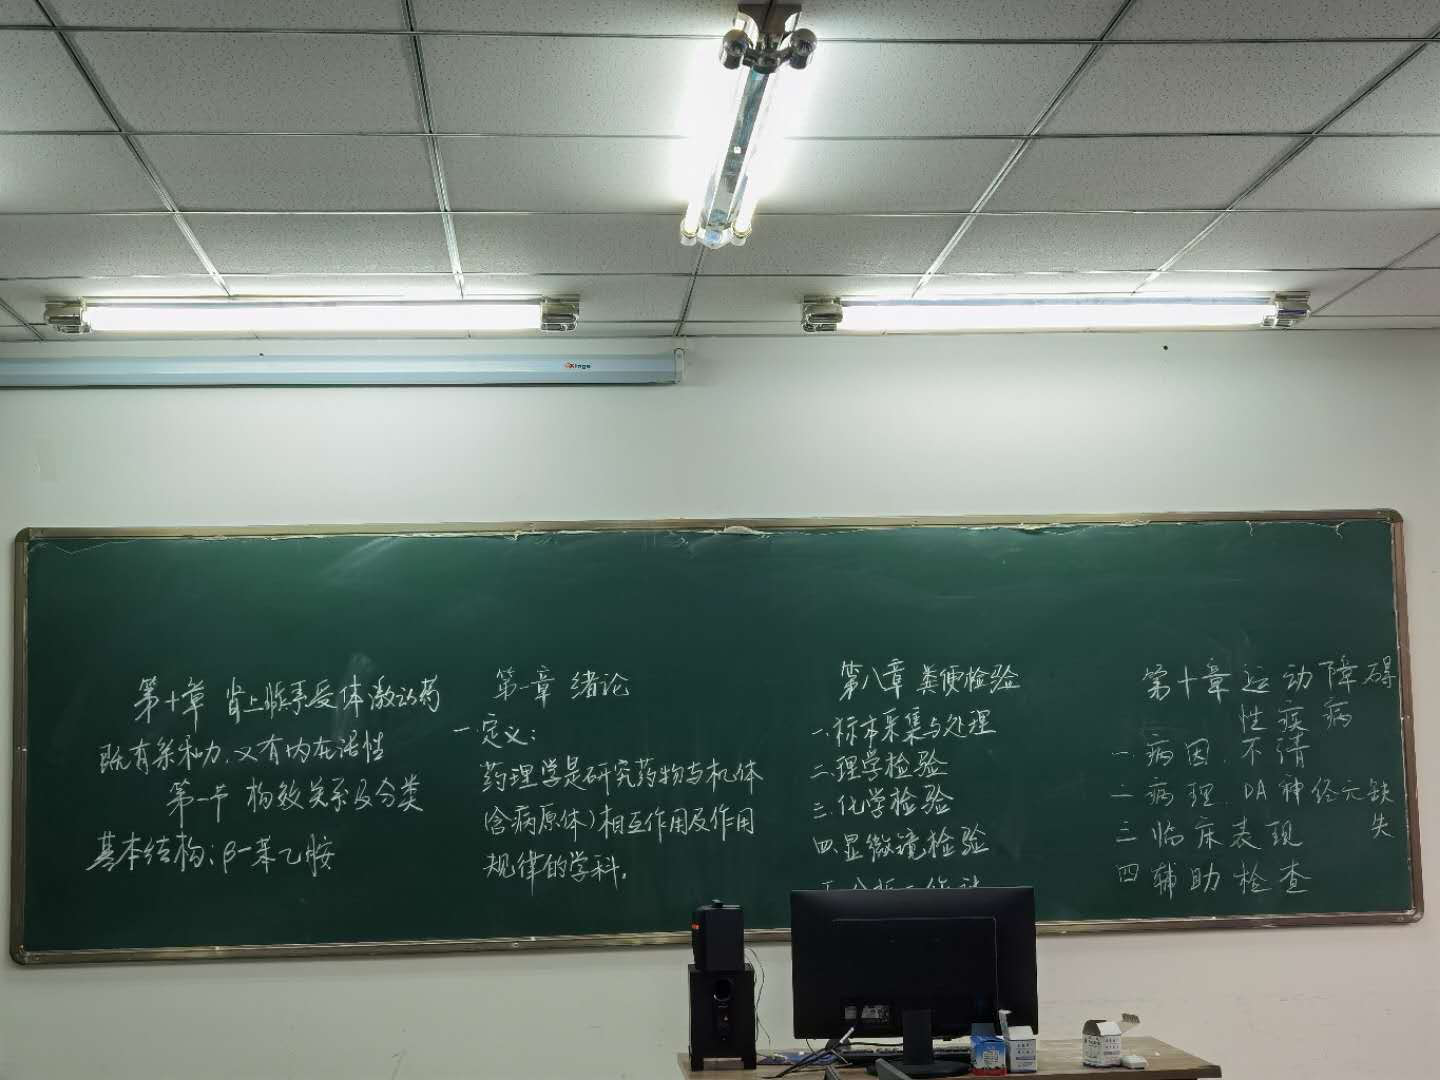 第十章 肾上腺素受体激动药
既有亲和力,又有内在活性
第一节 构效关系及分类
基本结构:β-苯乙胺
第一章 绪论
一.定义:
药理学是研究药物与机体
(含病原体)相互作用及作用
规律的学科.
第八章 粪便检验
一.标本采集与处理
二.理学检验
三.化学检验
四.显微镜检验
第十章 运动障碍
性疾病
一 病因.不清
二 病理.DA神经元缺
失
三 临床表现
四 辅助检查